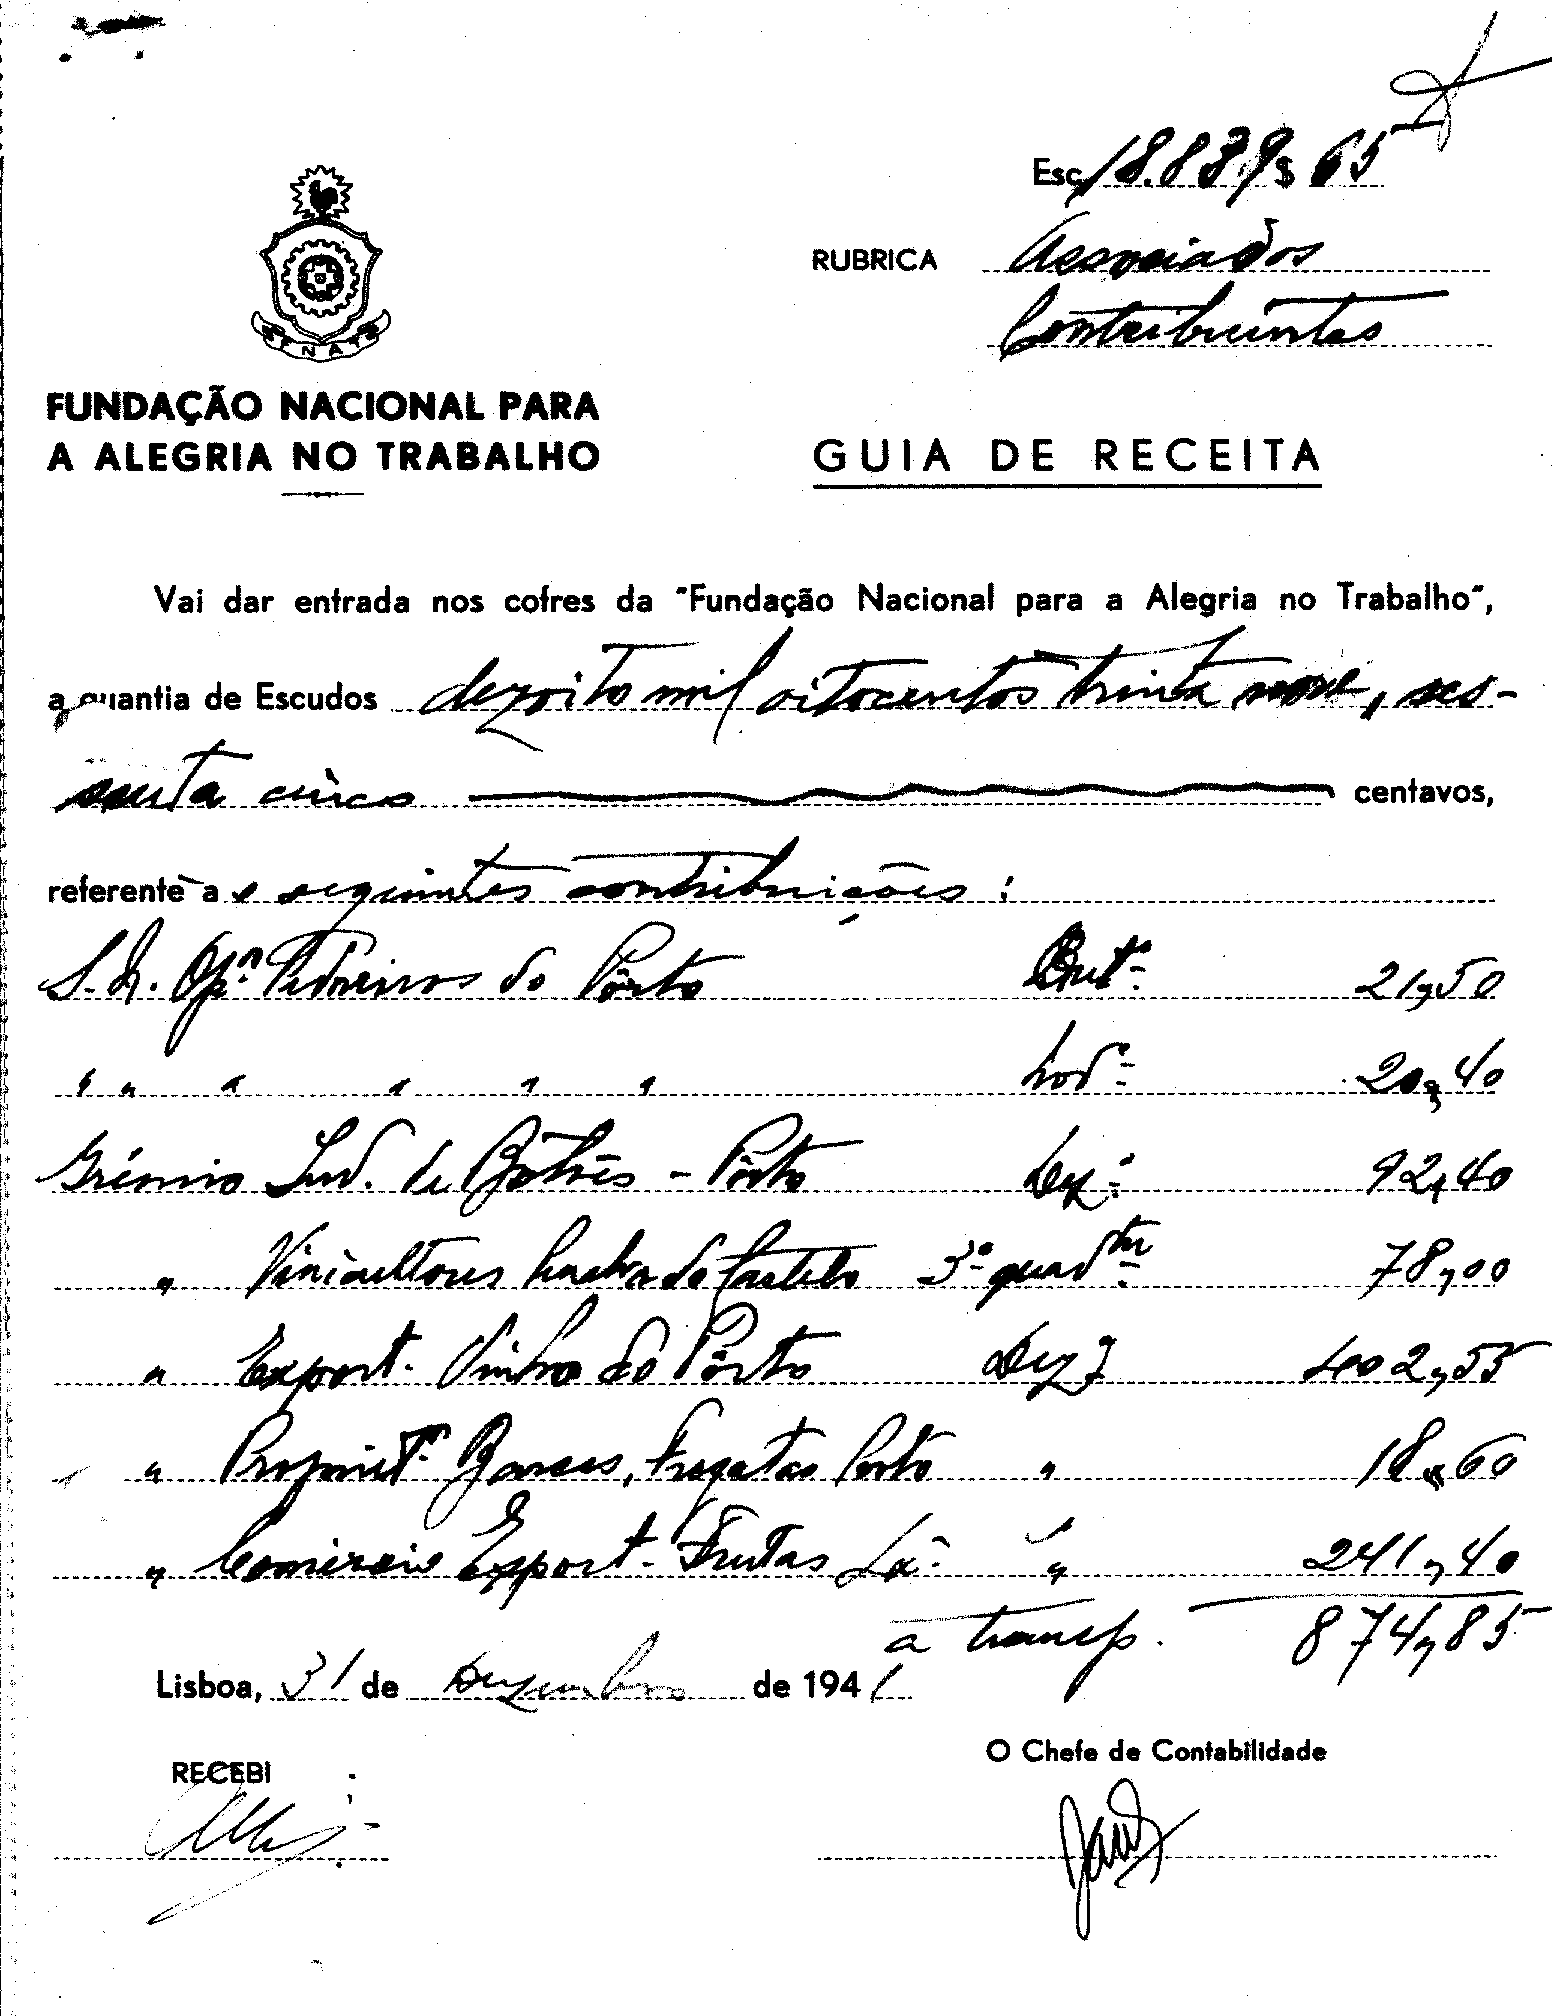 Esc. 18.839$65
RUBRICA Associados
Contribuintes
FNAT
FUNDAÇÃO NACIONAL PARA
A ALEGRIA NO TRABALHO
GUIA DE RECEITA
Vai dar entrada nos cofres da "Fundação Nacional para a Alegria no Trabalho",
a quantia de Escudos dezoito mil oitocentos trinta nove, ses-
senta cinco centavos,
referente a s seguintes contribuições:
S. N. Opº Pedreiros do Pôrto Outº 21,50
" " " " " " Novº 20,40
Grémio Ind. de Bolões - Pôrto Dezº 92,40
" Vinicultores do Castelo 3º quadtre 78,00
" Export. Vinho do Pôrto Dezº 402,55
" Propriet. Barcos, Fragatas Porto " 18,60
" Comércio Export. Frutas Lxª " 241,40
a transp. 874,85
Lisboa, 31 de Dezembro de 1941
O Chefe de Contabilidade
RECEBI